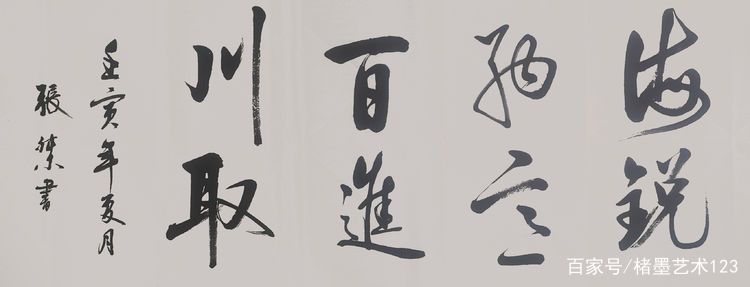 海納百川
鋭意進取
壬寅年夏月
張傑書
百家号/楮墨艺术123